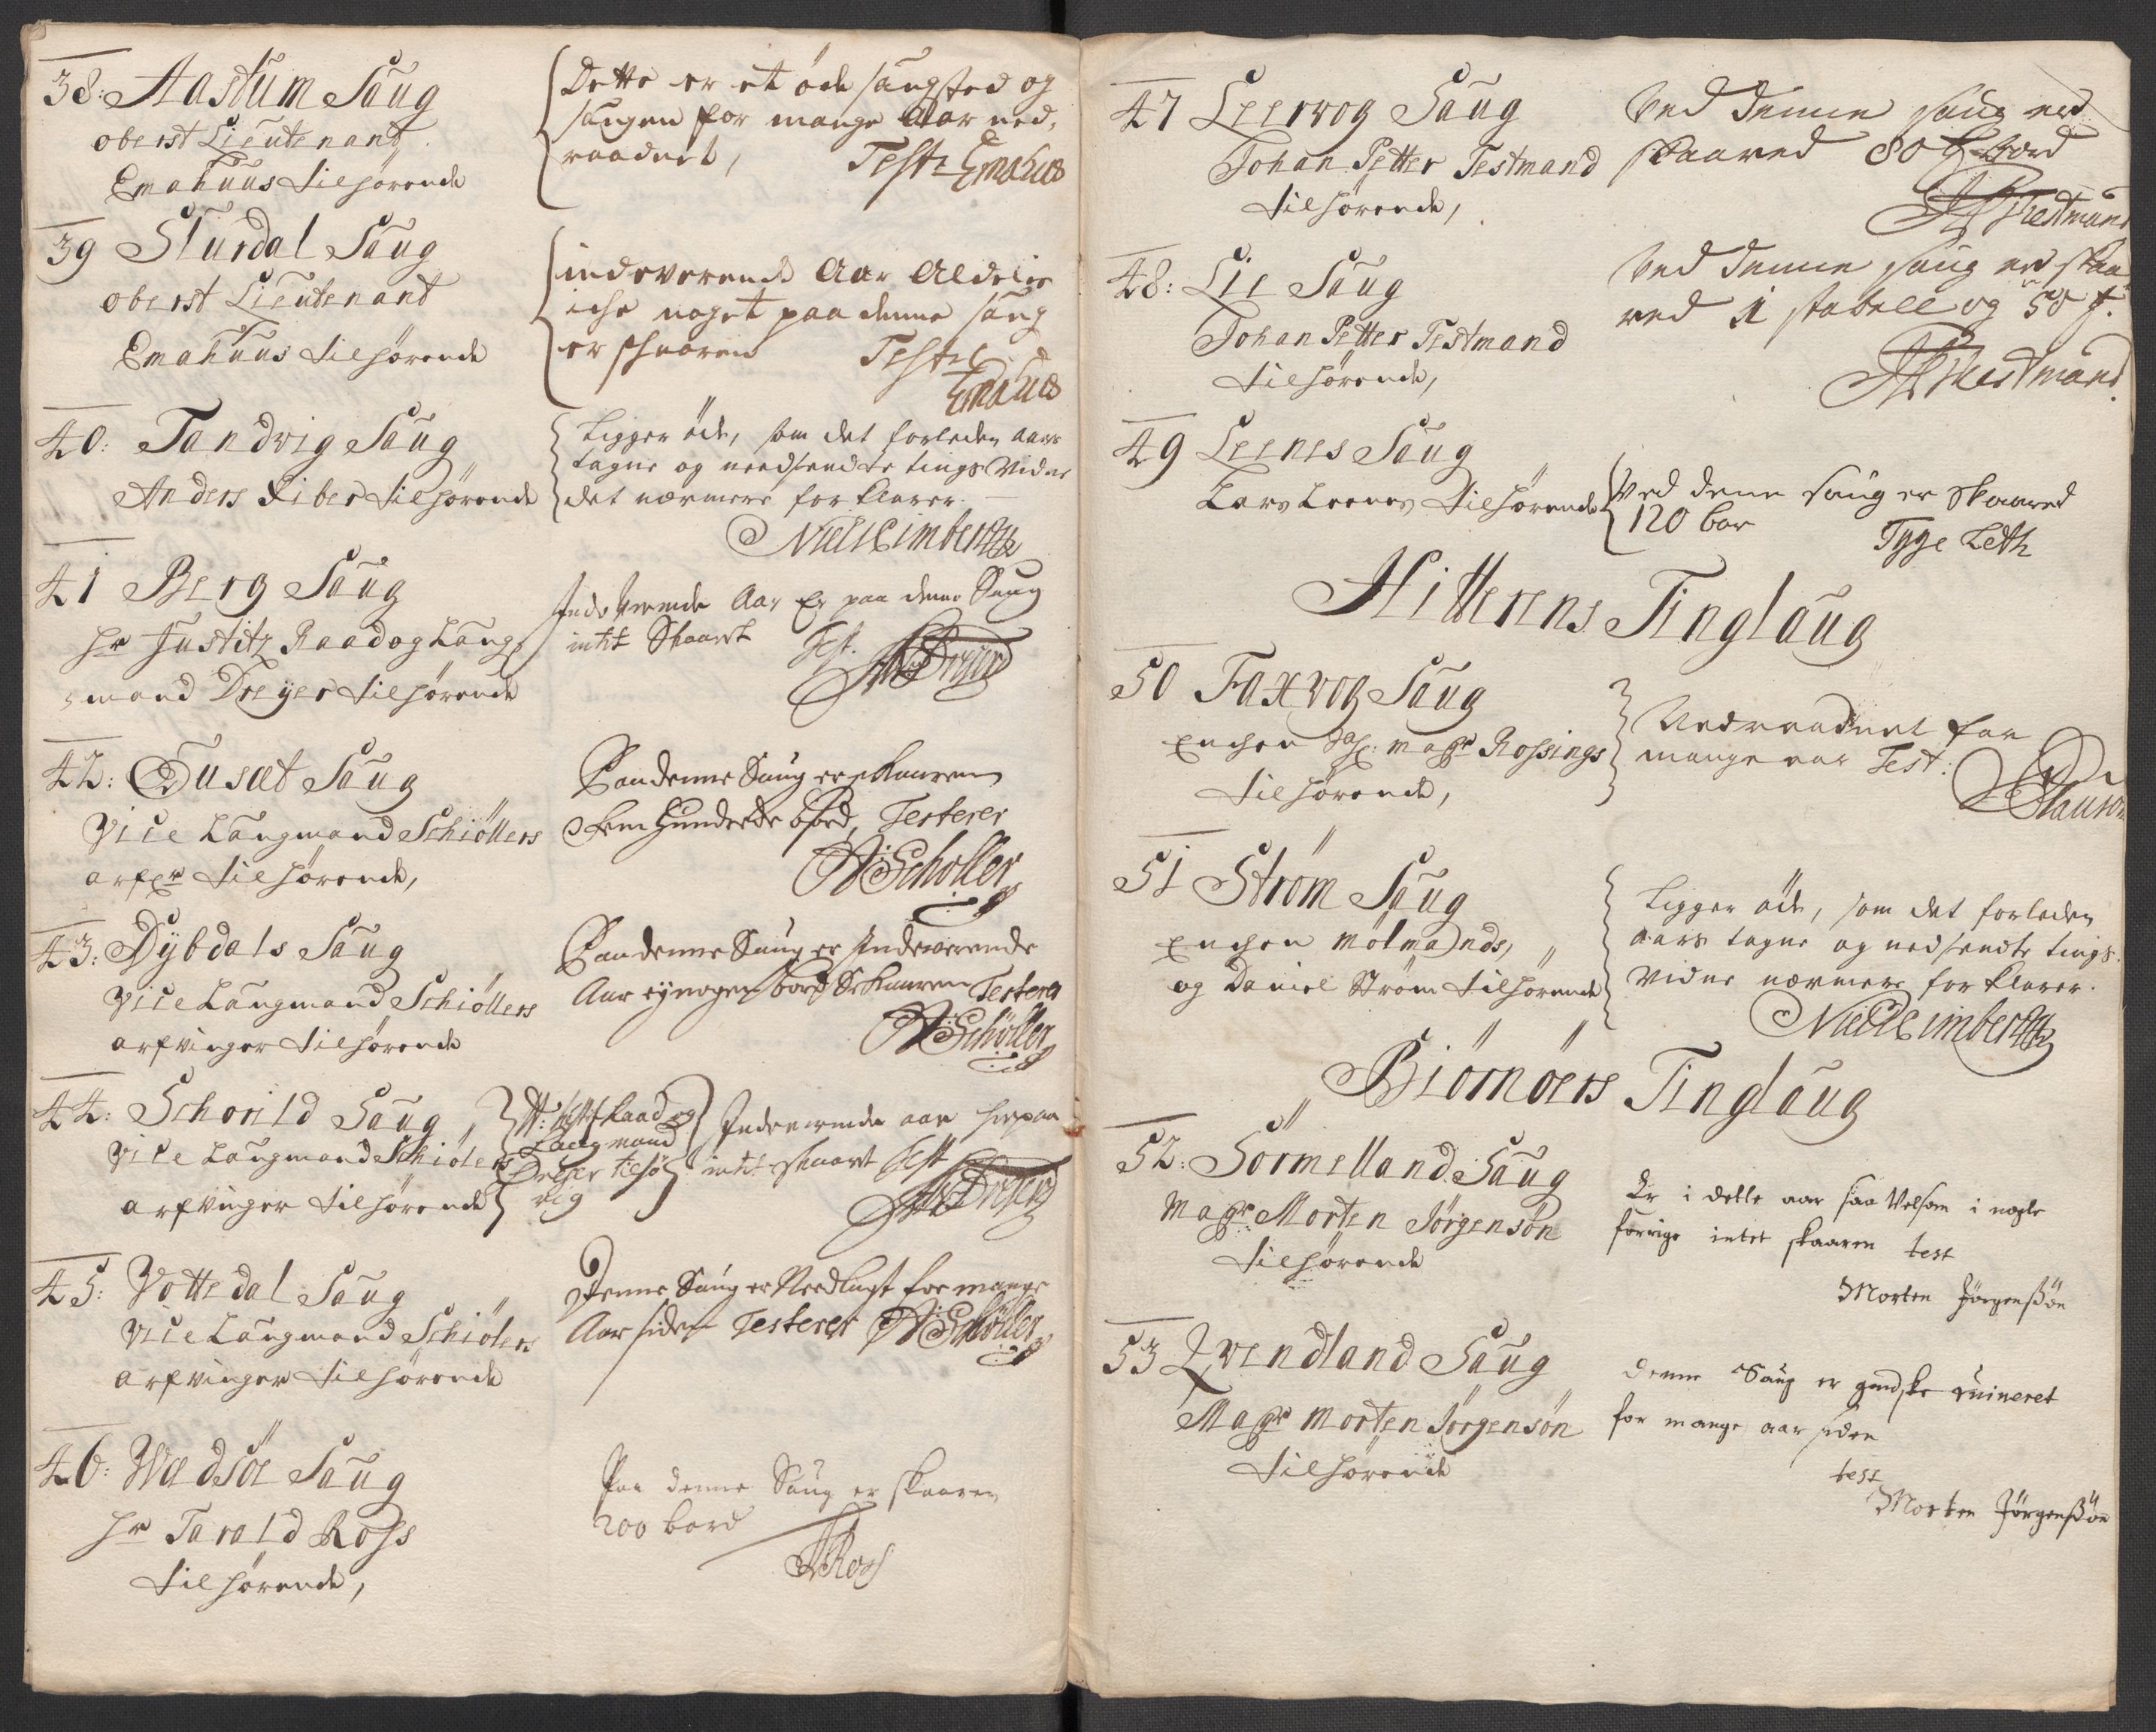 38: Aastum Saug
oberst Lieutenant
Emahuus tilhørende
Dette er et öde saugsted og
saugen for mange Aar ned-
raadnet, Teste Emahus
39 Slurdal Saug
oberst Lieutenant
Emahuus tilhørende
indeverende Aar Aldelis
iche noget paa denne saug
er schaaren Teste
Emahus
40: Tandvig Saug
Anders Riber tilhørende
Ligger öde, som det forleden aars
tagne og needsendte tings vidne
det nærmere forklarer.
41 Berg Saug
hr Justitz Raad og Laug-
mand Dreyer tilhørende
Indeverende Aar Er paa denne Saug
intet Skaaret Test.
Dreyer
42: Dusæt Saug
Vice Laugmand Schiöllers
arfver tilhørende,
Paa denne Saug er skaaren
Fem Hundrede bord, Testerer
Schøller
43: Dÿbdals Saug
Vice Laugmand Schiöllers
arfvinger tilhørende
Paa denne Saug er Indeværende
Aar ey nogen bord Skaaren Testerer
Schøller
44: Schorild Saug,
Vice Laugmand Schiölers
arfvinger tilhørende
Hr: Justitz Raad og
Laugmand
Dreyer tilhø-
rig
Indeverende aar her paa
intet skaaret Test
Dreyer
45: Vottedal Saug
Vice Laugmand Schiölers
arfvinger tilhørende
Denne Saug er Nedlagt for mange
Aar siden Testerer Schøller
46: Wædsöe Saug
hr Tarald Ross
tilhørende,
Paa denne Saug er skaaren
200 bord
TRoos
47 Leervog Saug
Johan Petter Testmand
tilhørende,
Ved denne saug er
skaared 80 bord
Testmand
48: Lie Saug
Johan Petter Testmand
tilhørende,
Ved denne saug er skaa
red 1 stabell og 50
Testmand
49 Leenes Saug
Lars Leenes tilhørende
Ved denne saug er skaared
120 bor
Tyge Leth
Hitterens Tinglaug
50 Faxvog Saug
Enchen Sal: magr Rossings
tilhørende,
Nedraadnet for
mange aar Test:
51 Ström Saug
Enchen mölmands,
og Daniel Ström tilhørende
Ligger öde, som det forleden
aars tagne og nedsendte tings-
vidne nærmere forklarer.
Biörnöers Tinglaug
52: Sörmelland Saug
Magr: Morten Jörgensön
tilhørende
Er i dette aar saa velsom i nogle
forrige intet skaaren test
Morten Jörgenssön
53 Qvendland Saug
Magr Morten Jörgensön
tilhørende
denne Saug er gandske ruineret
for mange aar siden
test
Morten Jörgenssön